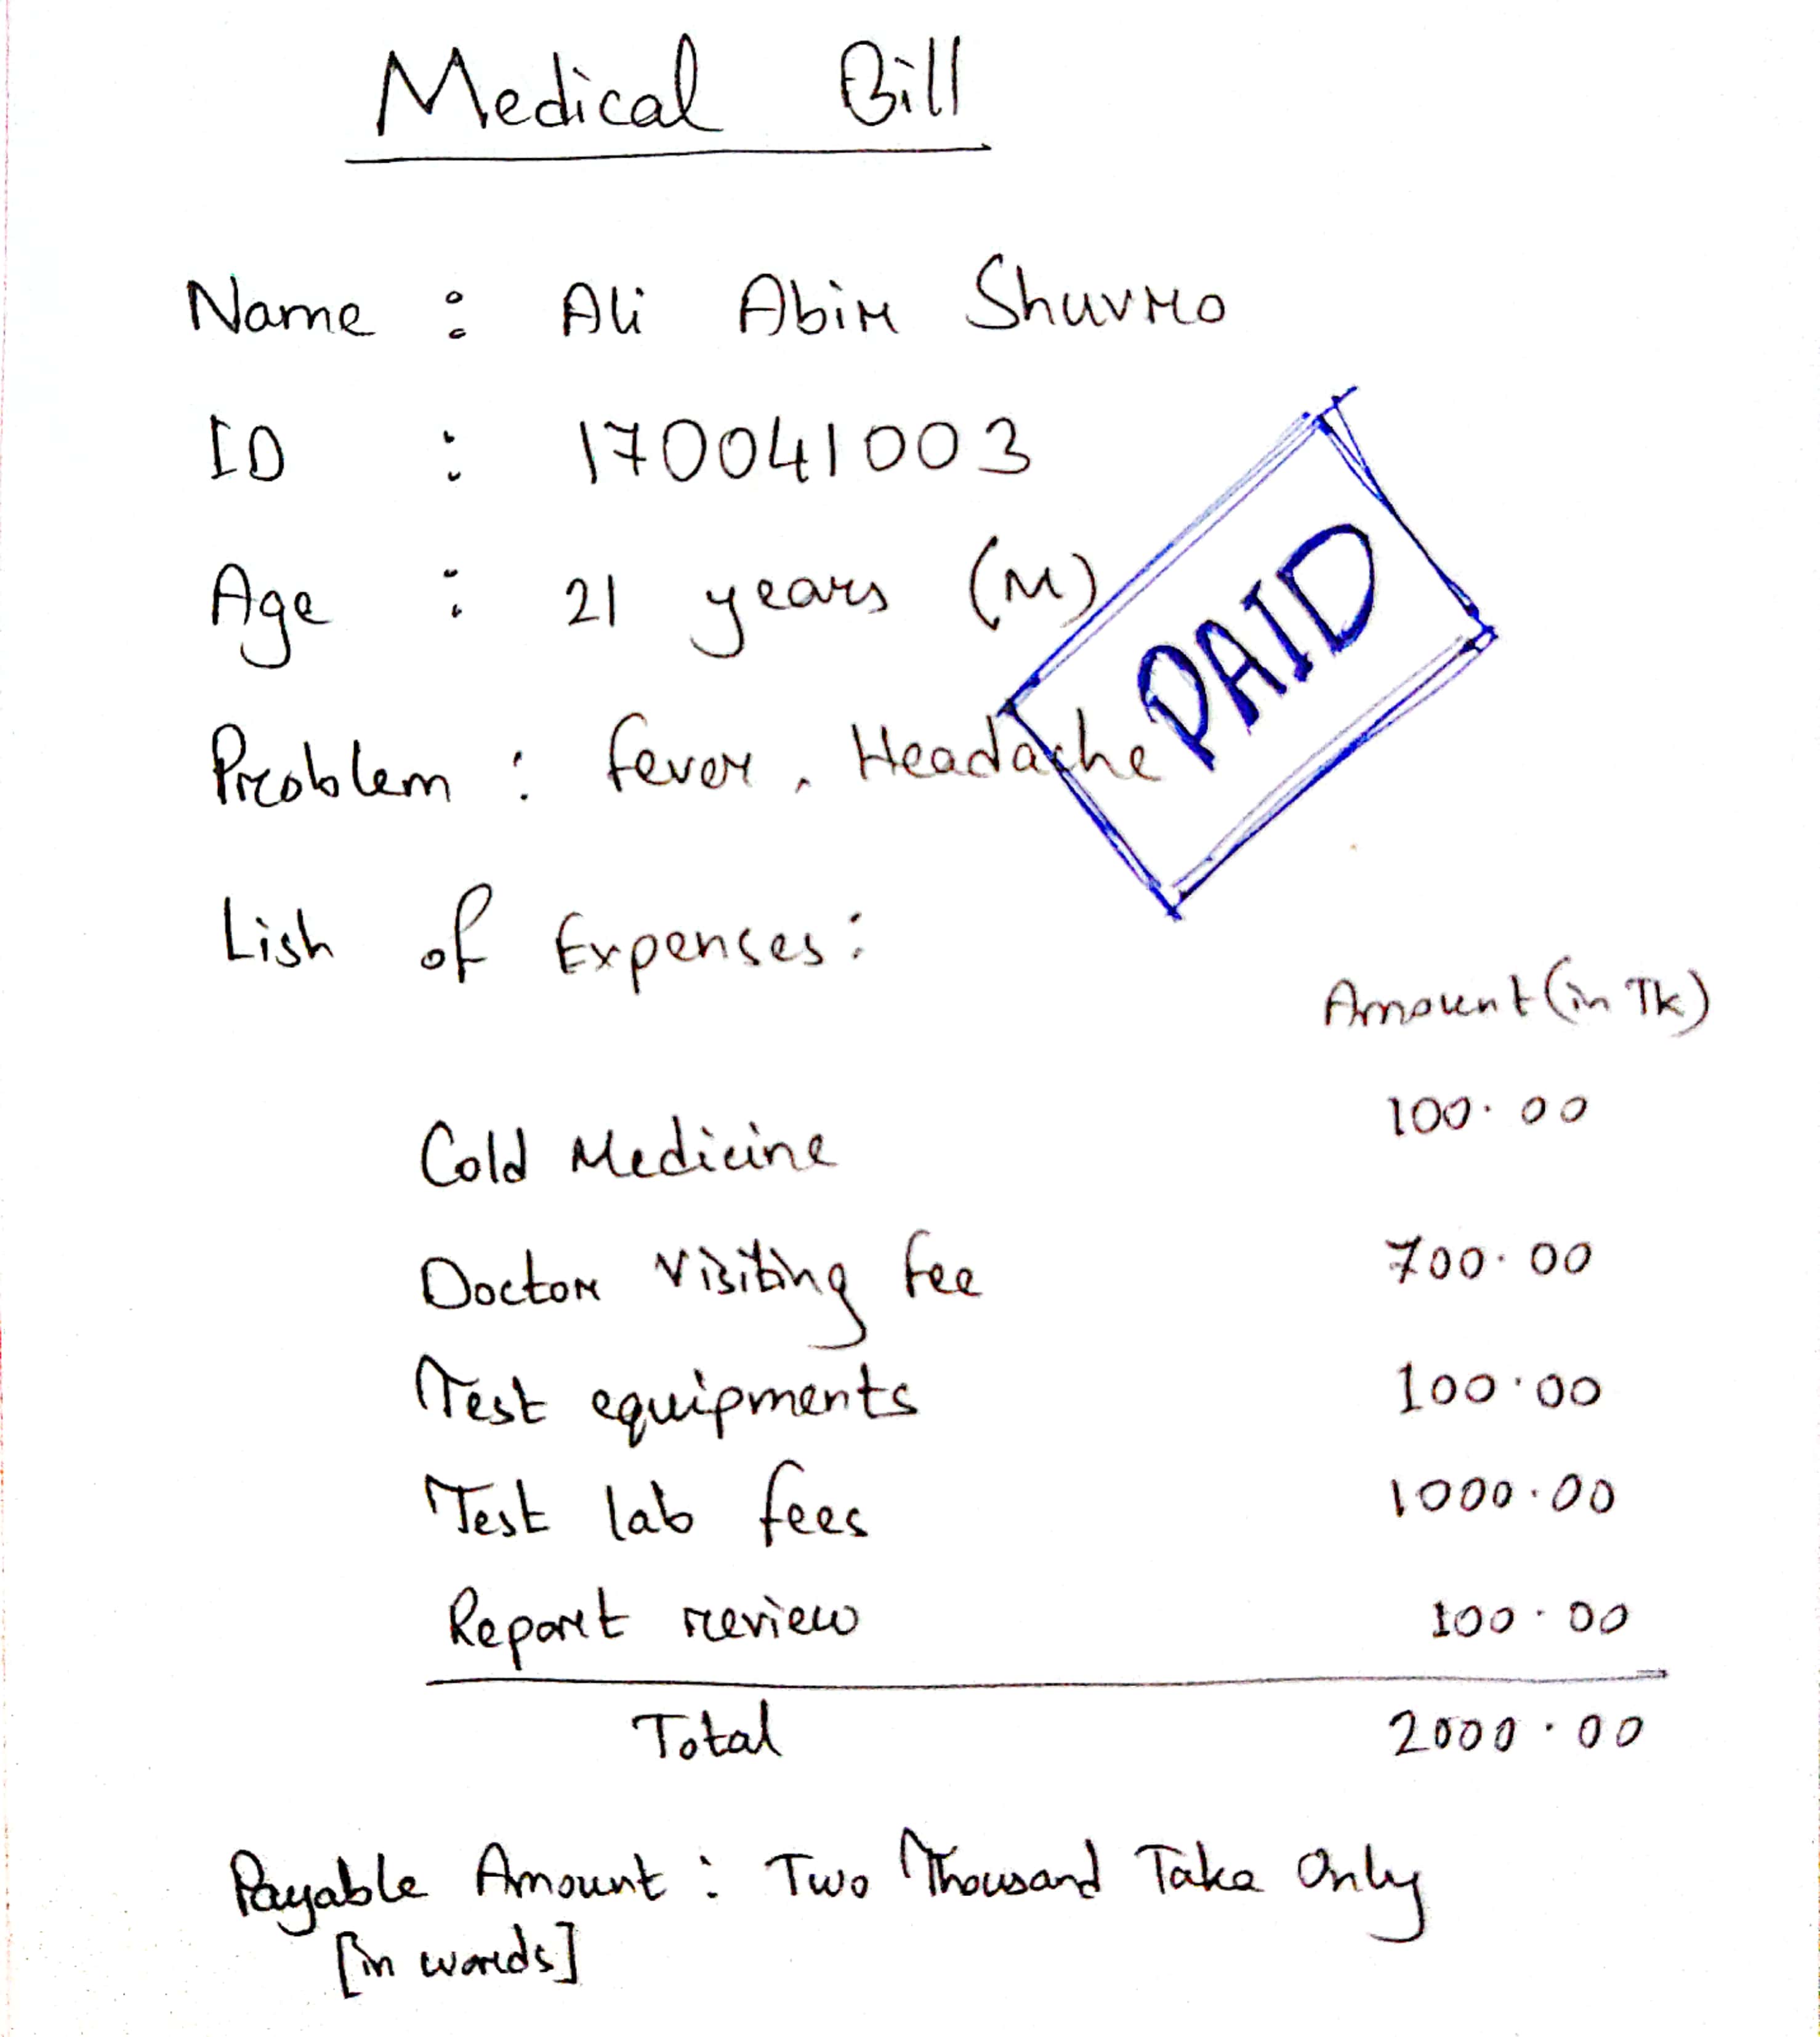 Medical Bill
Name : Ali Abir Shuvro
ID : 170041003
Age : 21 years (M)
PAID
Problem : Fever, Headache
List of Expenses:
Amount (in Tk)
Cold Medicine 100.00
Doctor Visiting fee 700.00
Test equipments 100.00
Test lab fees 1000.00
Report review 100.00
Total 2000.00
Payable Amount : Two Thousand Taka Only
[in words]